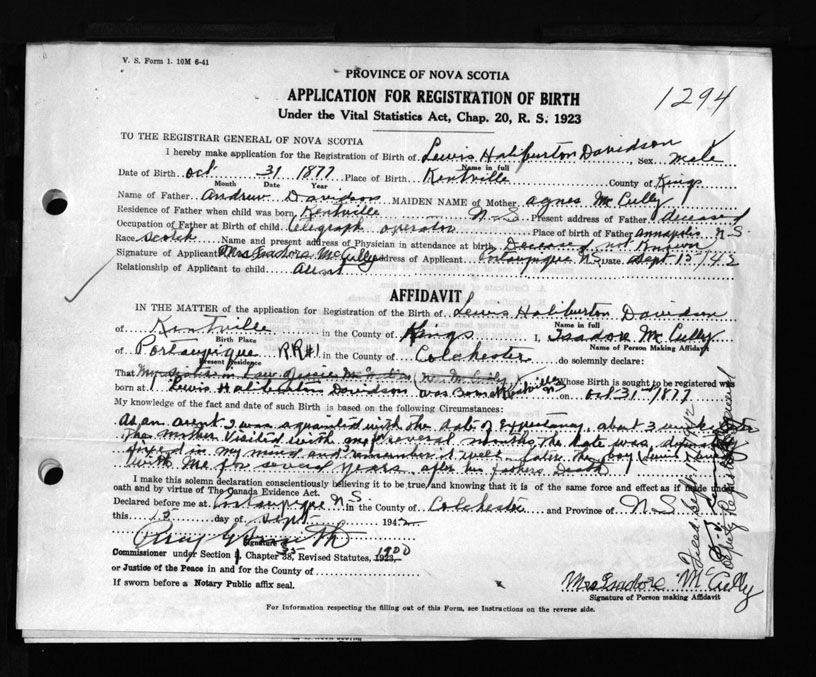 V. S. Form 1. 10M 6-41
PROVINCE OF NOVA SCOTIA
1294
APPLICATION FOR REGISTRATION OF BIRTH
Under the Vital Statistics Act, Chap. 20, R. S. 1923
TO THE REGISTRAR GENERAL OF NOVA SCOTIA
I hereby make application for the Registration of Birth of Lewis Haliburton Davidson Sex male
Name in full
Date of Birth Oct 31 1877 Place of Birth Kentville County of Kings
Month Date Year
Name of Father Andrew Davidson MAIDEN NAME of Mother Agnes McCully
Residence of Father when child was born Kentville N S Present address of Father deceased
Occupation of Father at Birth of child Telegraph operator Place of birth of Father Annapolis N S.
Race Scotch Name and present address of Physician in attendance at birth Deceased not Known
Signature of Applicant Mrs Isadore McCully Address of Applicant Portaupique N S. Date Sept 15 1942
Relationship of Applicant to child Aunt
AFFIDAVIT
IN THE MATTER of the application for Registration of the Birth of Lewis Haliburton Davidson
Name in full
of Kentville in the County of Kings I, Isadore McCully
Birth Place Name of Person Making Affidavit
of Portaupique RR#1 in the County of Colchester do solemnly declare:
Present Residence
That Whose Birth is sought to be registered was
born at Lewis Haliburton Davidson was Born at Kentville on on Oct 31 1877
My knowledge of the fact and date of such Birth is based on the following Circumstances:
As an aunt I was aquainted with the date of Expectancy about 3 weeks after
The mother Visited with me for several months, the date was
fixed in my mind and I remember it well. Later the boy (Lewis) lived
with me for several years after his fathers Death
I make this solemn declaration conscientiously believing it to be true, and knowing that it is of the same force and effect as if made under
oath and by virtue of The Canada Evidence Act.
Declared before me at Portaupique N S in the County of Colchester and Province of N. S.
this 15 day of Sept 1942
Signature of
Commissioner under Section , Chapter 38, 35 Revised Statutes, 1923, 1900
or Justice of the Peace in and for the County of
If sworn before a Notary Public affix seal.
Mrs Isadore McCully
Signature of Person making Affidavit
For Information respecting the filling out of this Form, see Instructions on the reverse side.